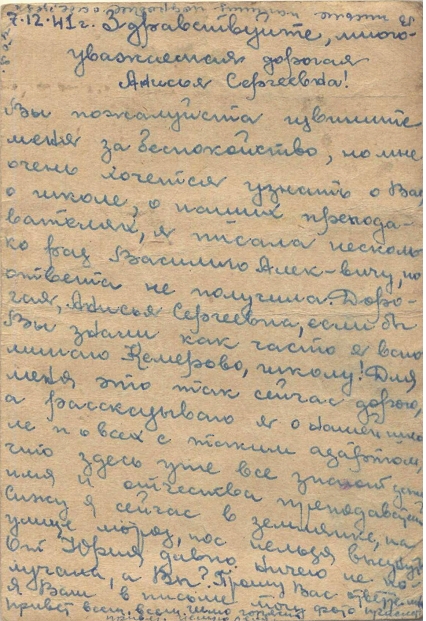 7.12.41 г. Здравствуйте, много-
уважаемая дорогая
Анисья Сергеевна!
Вы пожалуйста извините
меня за беспокойство, но мне
очень хочется узнать о Вас,
о школе, о наших препода-
вателях, я писала несколь
ко раз Василию Алек-вичу, но
ответа не получила. Доро-
гая, Анисья Сергеевна, если бы
Вы знали как часто я вспо
минаю Кемерово, школу! Для
меня это так сейчас дорого,
а рассказываю я о нашей шко
ле и о всех с таким азартом,
что здесь уже все знают даже
имя и отчества преподават
Сижу я сейчас в землянке, на
улице мороз, нос нельзя высунуть
От Юрия давно ничего не по-
лучала, а Вы? Прошу Вас ответьте
я Вам в письме фото
привет всем, всем